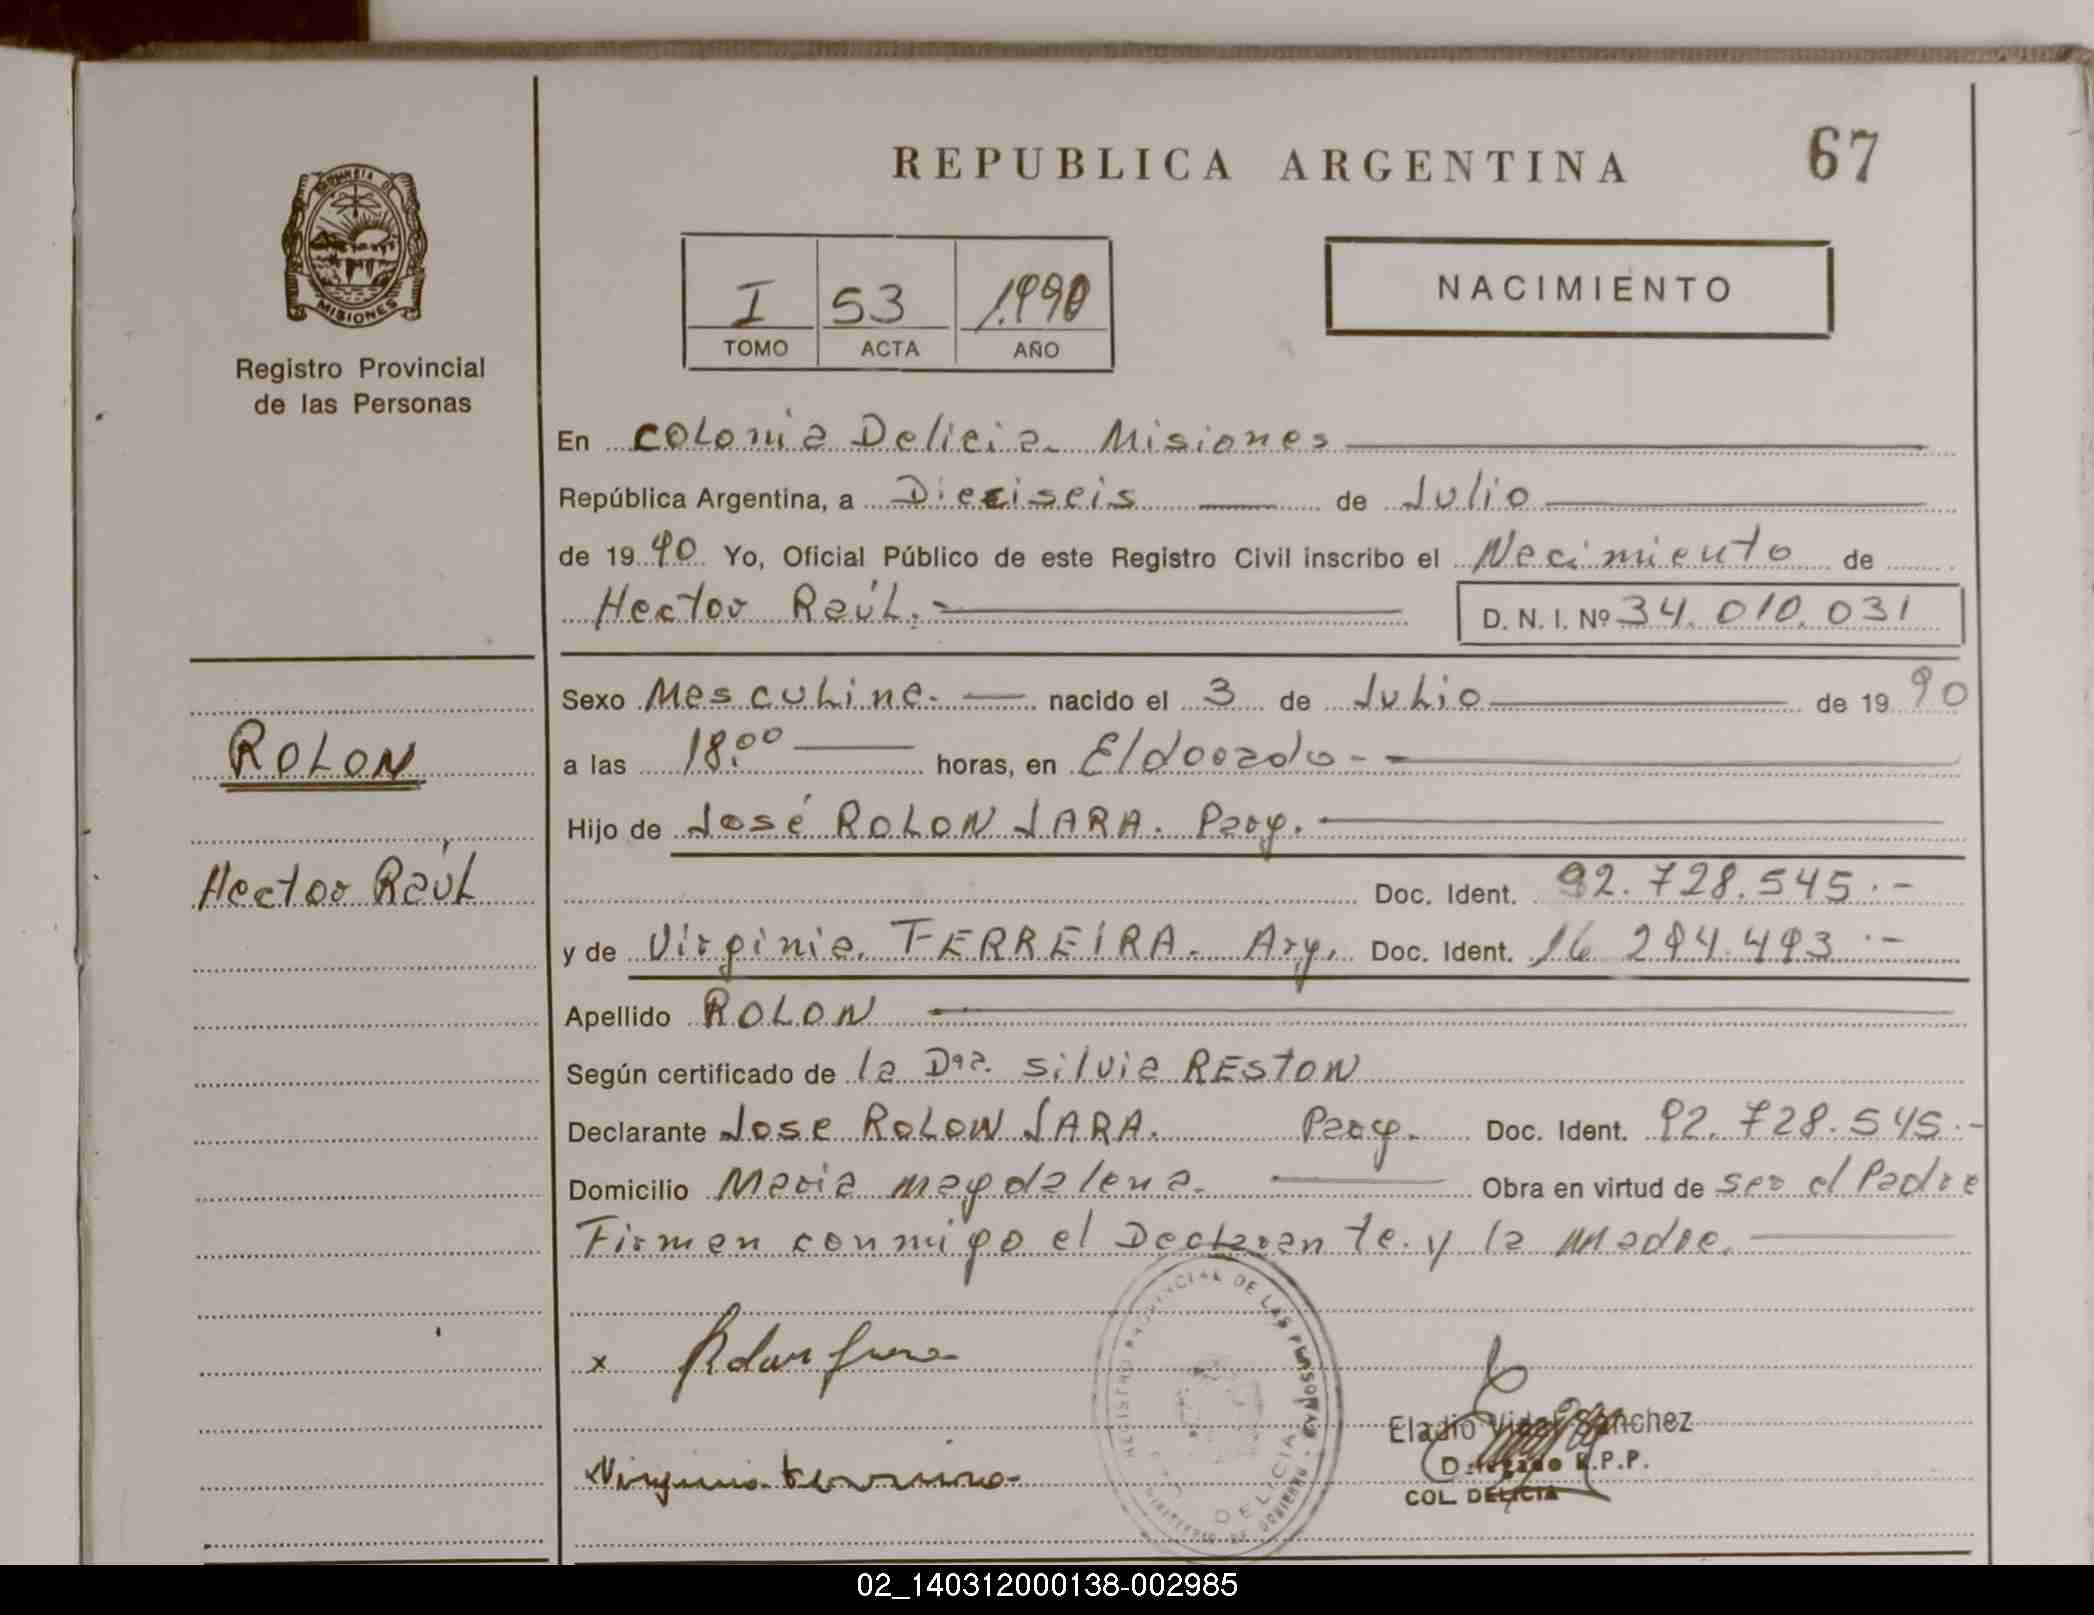 REPUBLICA ARGENTINA
67
PROVINCIA DE
MISIONES
Registro Provincial
de las Personas
I 53 1.990
TOMO ACTA AÑO
NACIMIENTO
En Colonia Delicia. Misiones
República Argentina, a Dieciseis de Julio
de 19 90 Yo, Oficial Público de este Registro Civil inscribo el Nacimiento de
Hector Raúl.-
D. N. I. Nº 34.010.031
ROLON
Hector Raúl
Sexo Masculino.- nacido el 3 de Julio de 19 90
a las 18:00 horas, en Eldorado.-
Hijo de José ROLON JARA. Parg.
Doc. Ident. 92.728.545.-
y de Virginia FERREIRA. Arg. Doc. Ident. 16 294.493.-
Apellido ROLON
Según certificado de la Dra. Silvia RESTON
Declarante Jose ROLON JARA. Parg. Doc. Ident. 92.728.545.-
Domicilio Maria magdalena. Obra en virtud de ser el Padre
Firman conmigo el Declarante y la madre.
x Rolon Jara
Virginia Ferreira
REGISTRO PROVINCIAL DE LAS PERSONAS
MINISTERIO DE GOBIERNO
DELICIA
Eladio Vidal Sanchez
Delegado R.P.P.
COL. DELICIA
02_140312000138-002985